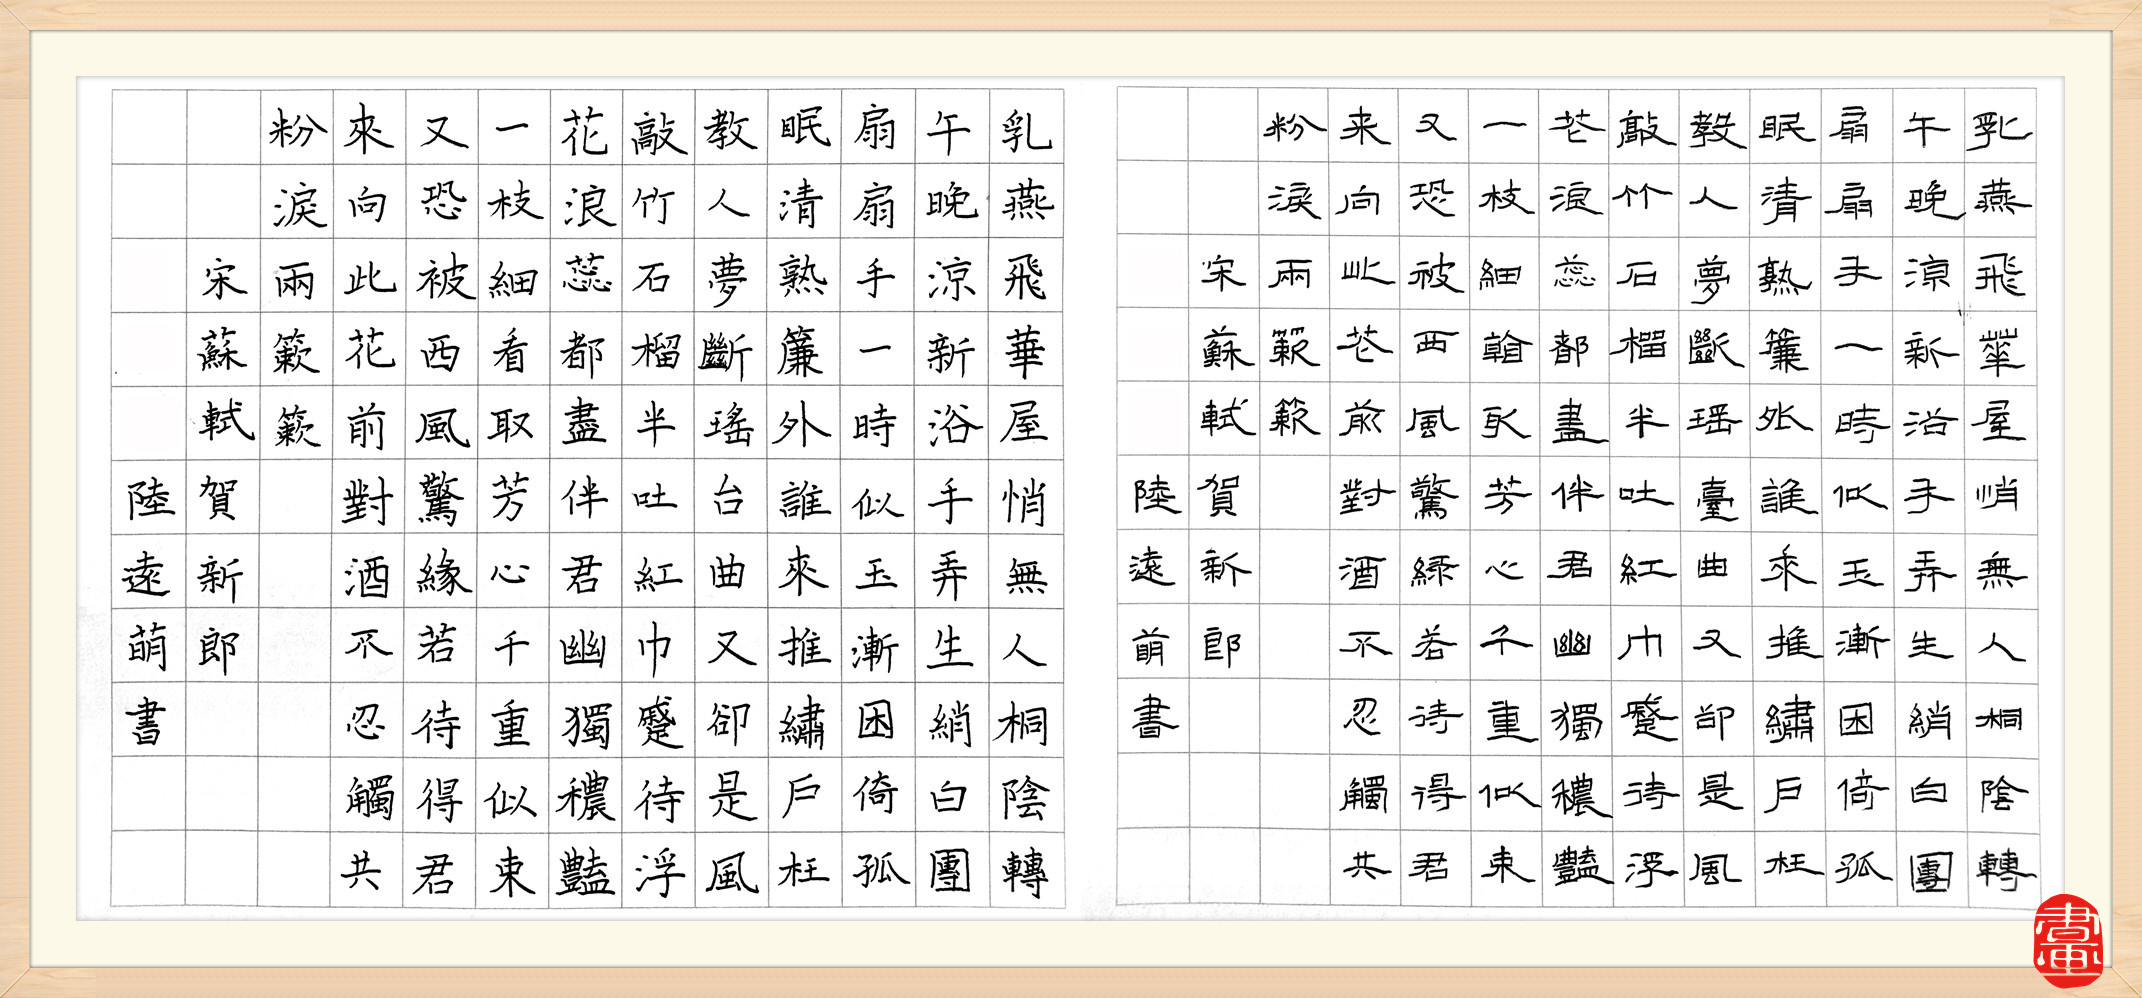 乳燕飛華屋悄無人桐陰轉
午晚涼新浴手弄生綃白團
扇扇手一時似玉漸困倚孤
眠清熟簾外誰來推繡戶枉
教人夢斷瑤臺曲又卻是風
敲竹石榴半吐紅巾蹙待浮
花浪蕊都盡伴君幽獨穠豔
一枝細看取芳心千重似束
又恐被西風驚綠若待得君
来向此花前對酒不忍觸共
粉淚兩簌簌
宋蘇軾 賀新郎
陸遠萌書
乳燕飛華屋悄無人桐陰轉
午晚涼新浴手弄生綃白團
扇扇手一時似玉漸困倚孤
眠清熟簾外誰來推繡戶枉
教人夢斷瑤台曲又卻是風
敲竹石榴半吐紅巾蹙待浮
花浪蕊都盡伴君幽獨穠豔
一枝細看取芳心千重似束
又恐被西風驚緣若待得君
來向此花前對酒不忍觸共
粉淚兩簌簌
宋蘇軾 賀新郎
陸遠萌書